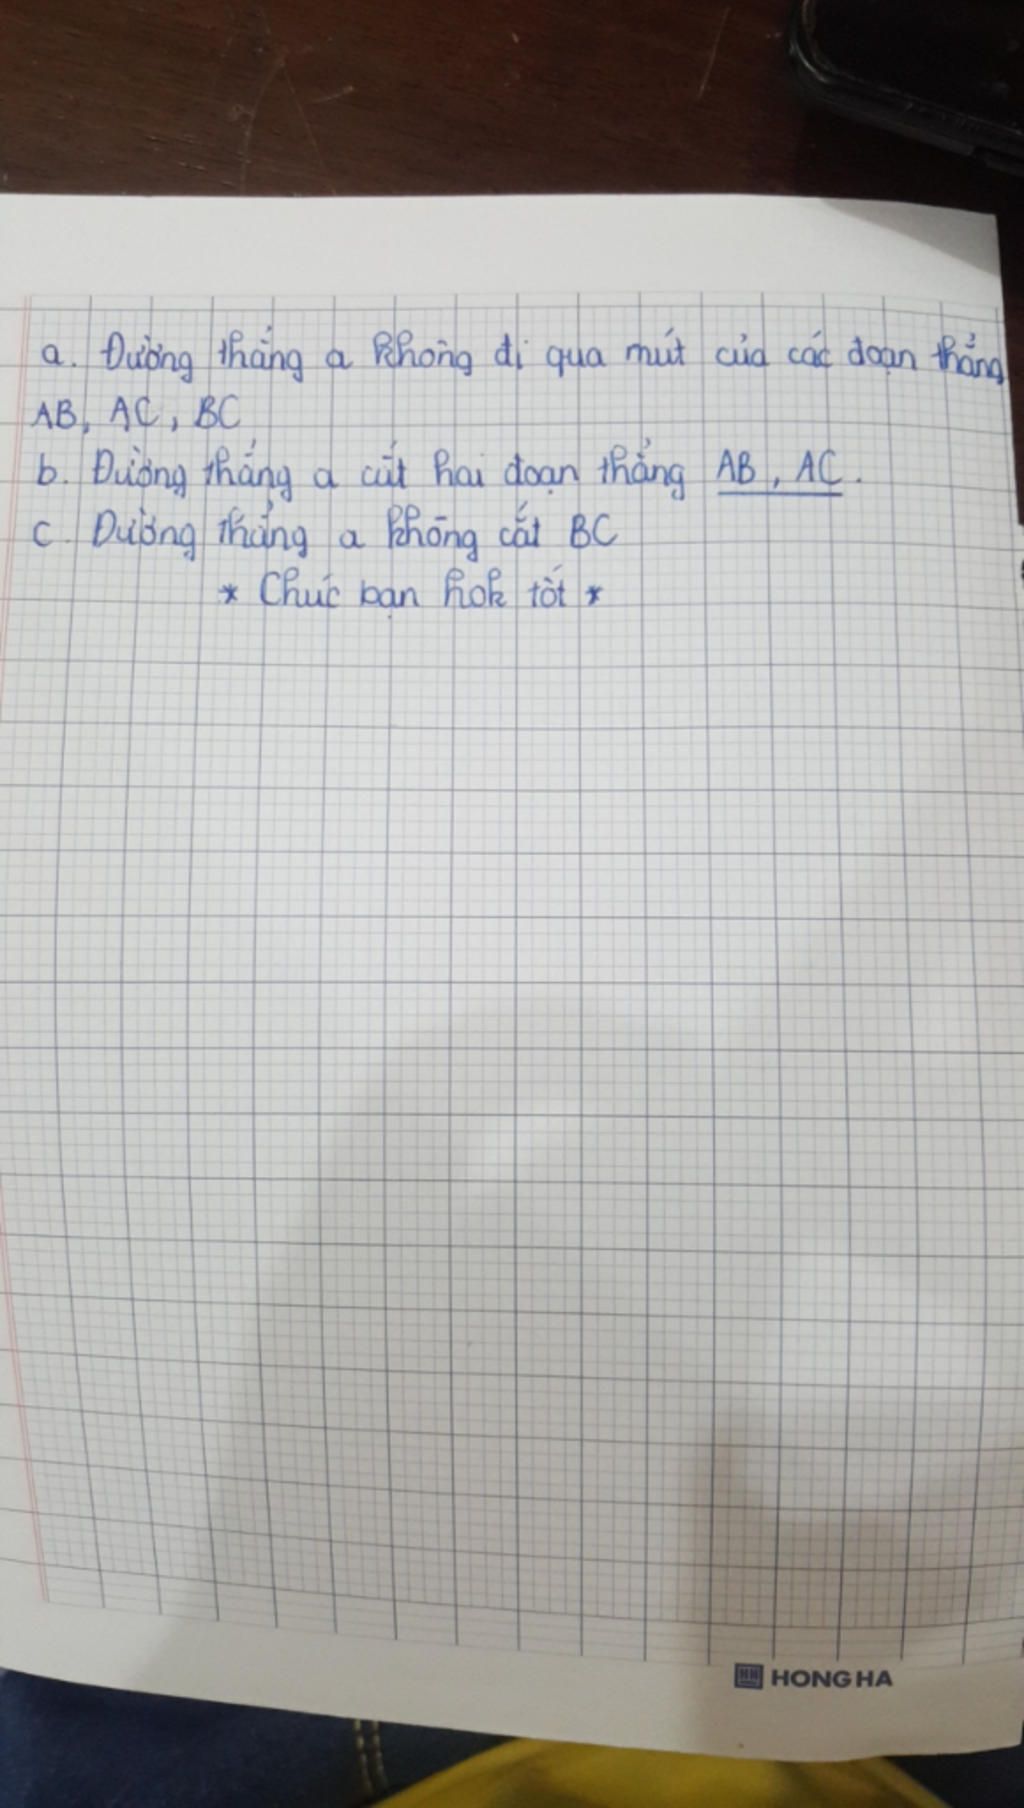 a. Đường thẳng a không đi qua mút của các đoạn thẳng
AB, AC, BC
b. Đường thẳng a cắt hai đoạn thẳng AB, AC.
c. Đường thẳng a không cắt BC
* Chúc bạn hok tốt *
HONG HA